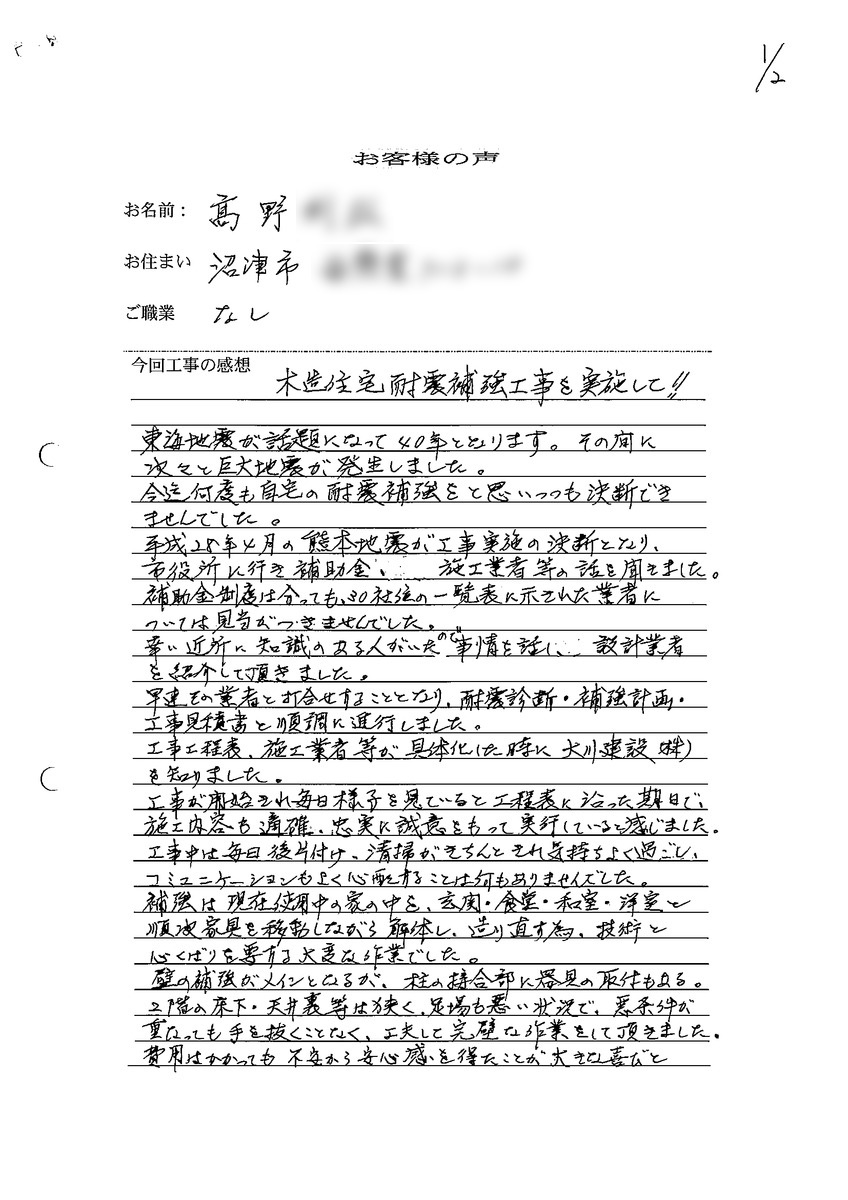 1/2
お客様の声
お名前： 髙野
お住まい 沼津市
ご職業 なし
今回工事の感想
木造住宅耐震補強工事を実施して!!
東海地震が話題になって40年ととなります。その間に
次々と巨大地震が発生しました。
今迄何度も自宅の耐震補強をと思いつつも決断でき
ませんでした。
平成28年4月の熊本地震が工事実施の決断となり、
市役所に行き補助金、 施工業者等の話を聞きました。
補助金制度は分っても、30社強の一覧表に示された業者に
ついては見当がつきませんでした。
幸い近所に知識のある人がいたので事情を話し 設計業者
を紹介して頂きました。
早速その業者と打合せすることとなり、耐震診断・補強計画・
工事見積書と順調に進行しました。
工事工程表、施工業者等が具体化した時に大川建設(株)
を知りました。
工事が開始され毎日様子を見ていると工程表に沿った期日で、
施工内容も適確、忠実に誠意をもって実行していると感じました。
工事中は毎日後片付け、清掃がきちんとされ気持ちよく過ごし、
コミュニケーションもよく心配することは何もありませんでした。
補強は現在使用中の家の中を、玄関・食堂・和室・洋室と
順次家具を移動しながら解体し、造り直す為、技術と
心くばりを要する大変な作業でした。
壁の補強がメインとなるが、柱の接合部に器具の取付もある。
2階の床下・天井裏等は狭く、足場も悪い状況で、悪条件が
重なっても手を抜くことなく、工夫して完璧な作業をして頂きました。
費用はかかっても不安から安心感を得たことが大きな喜びと